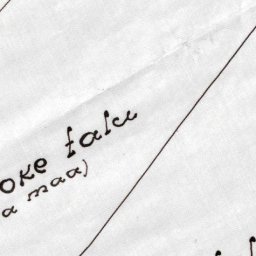 oke talu
a maa)